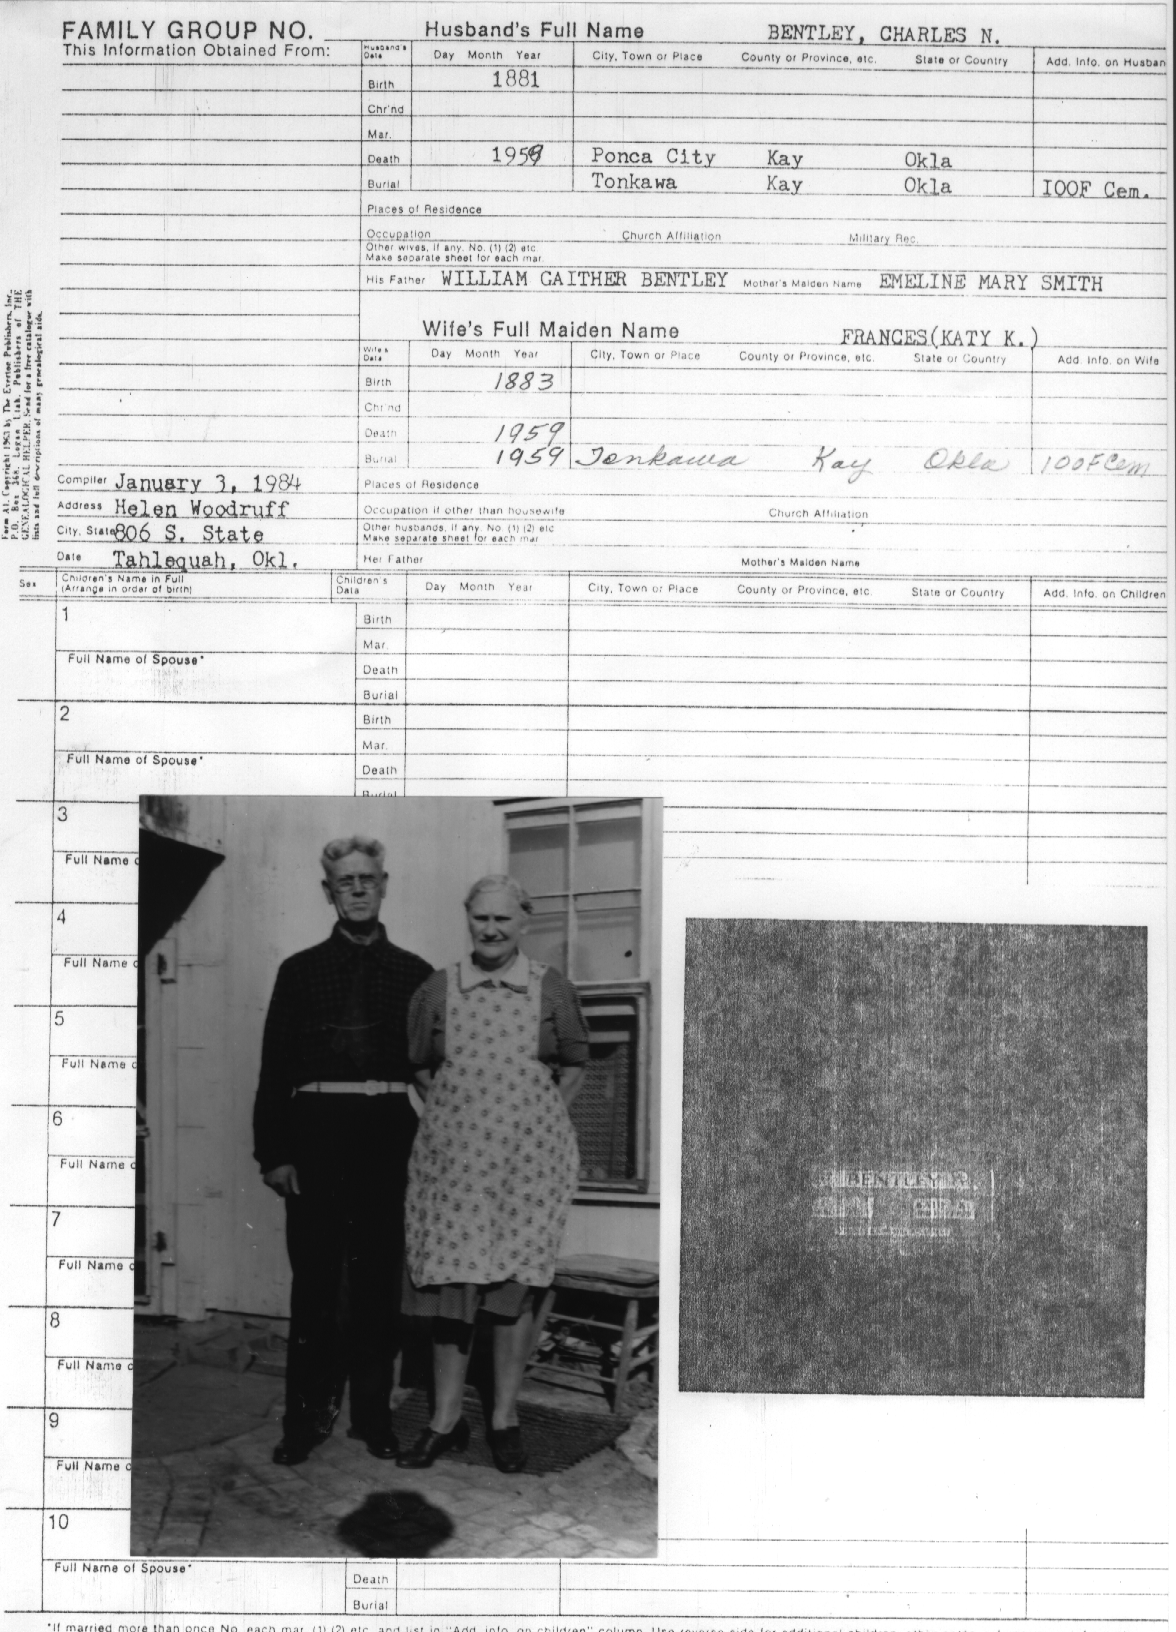 FAMILY GROUP NO.
This Information Obtained From:
Husband's Full Name BENTLEY, CHARLES N.
Husband's Data Day Month Year City, Town or Place County or Province, etc. State or Country Add. Info. on Husban
Birth 1881
Chr'nd
Mar.
Death 1959 Ponca City Kay Okla
Burial Tonkawa Kay Okla IOOF Cem.
Places of Residence
Occupation Church Affiliation Military Rec.
Other wives, if any. No. (1) (2) etc.
Make separate sheet for each mar.
His Father WILLIAM GAITHER BENTLEY Mother's Maiden Name EMELINE MARY SMITH
Wife's Full Maiden Name FRANCES(KATY K.)
Wife's Data Day Month Year City, Town or Place County or Province, etc. State or Country Add. Info. on Wife
Birth 1883
Chr'nd
Death 1959
Burial 1959 Tonkawa Kay Okla IOOF Cem
Places of Residence
Occupation if other than housewife Church Affiliation
Other husbands, if any. No. (1) (2) etc.
Make separate sheet for each mar.
Her Father Mother's Maiden Name
Form A1. Copyright 1963 by The Everton Publishers, Inc.,
P.O. Box 368, Logan Utah. Publishers of THE
GENEALOGICAL HELPER. Send for a free catalogue with
lists and full descriptions of many genealogical aids.
Compiler January 3, 1984
Address Helen Woodruff
City, State 806 S. State
Date Tahlequah, Okl.
Sex Children's Name in Full
(Arrange in order of birth)
Children's Data Day Month Year City, Town or Place County or Province, etc. State or Country Add. Info. on Children
1
Birth
Mar.
Full Name of Spouse*
Death
Burial
2
Birth
Mar.
Full Name of Spouse*
Death
Burial
3
Full Name o
4
Full Name o
5
Full Name o
6
Full Name o
BENTLEY
7
Full Name o
8
Full Name o
9
Full Name o
10
Full Name of Spouse*
Death
Burial
*If married more than once No. each mar. (1) (2) etc. and list in "Add. info. on children" column. Use reverse side for additional children,